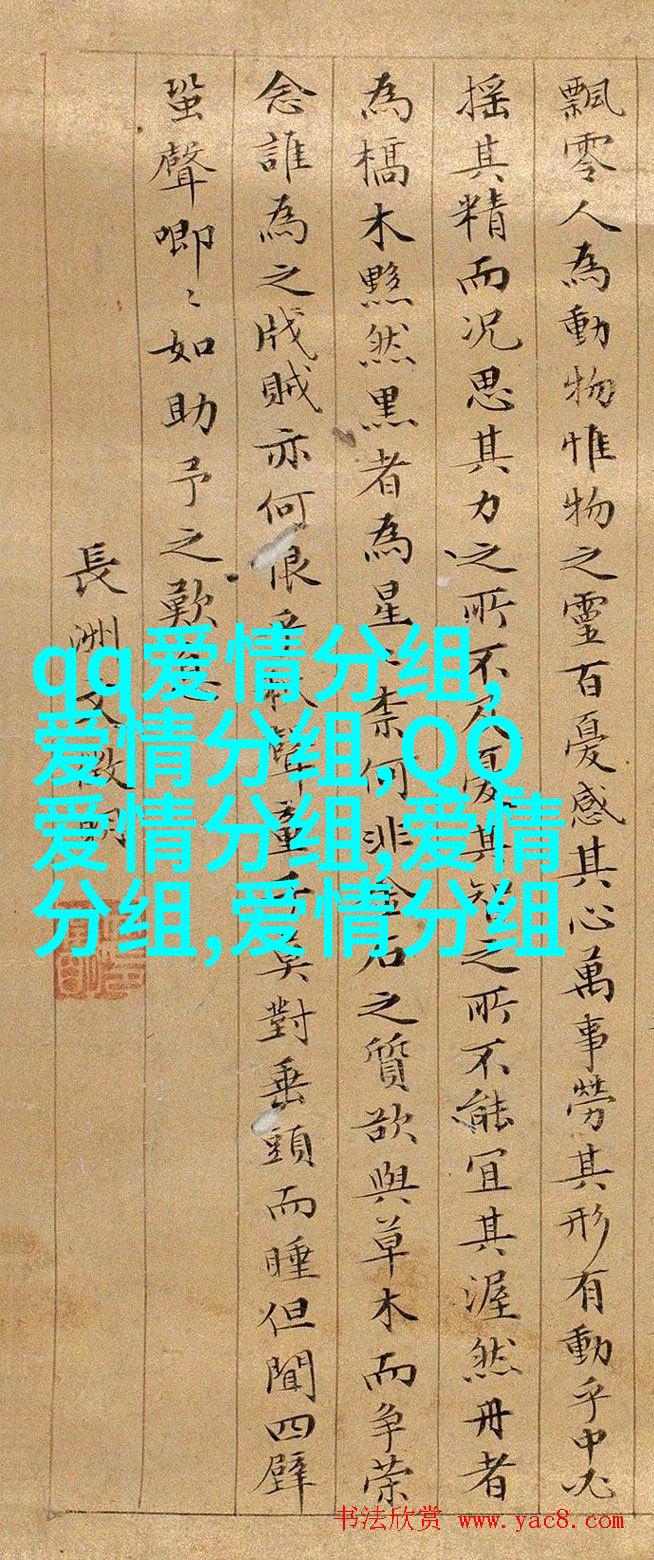 飄零人為動物惟物之靈百憂感其心萬事勞其形有動乎中必
搖其精而況思其力之所不及憂其智之所不能宜其渥然丹者
為槁木黟然黑者為星〻柰何非金石之質欲與草木而争荣
念誰為之戕賊亦何恨乎秋聲童子莫對垂頭而睡但聞四壁
蛩聲唧〻如助予之歎息
長洲文徵明
qq爱情分组,
爱情分组,QQ
爱情分组,爱情
分组,爱情分组
书法欣赏 www.yac8.com